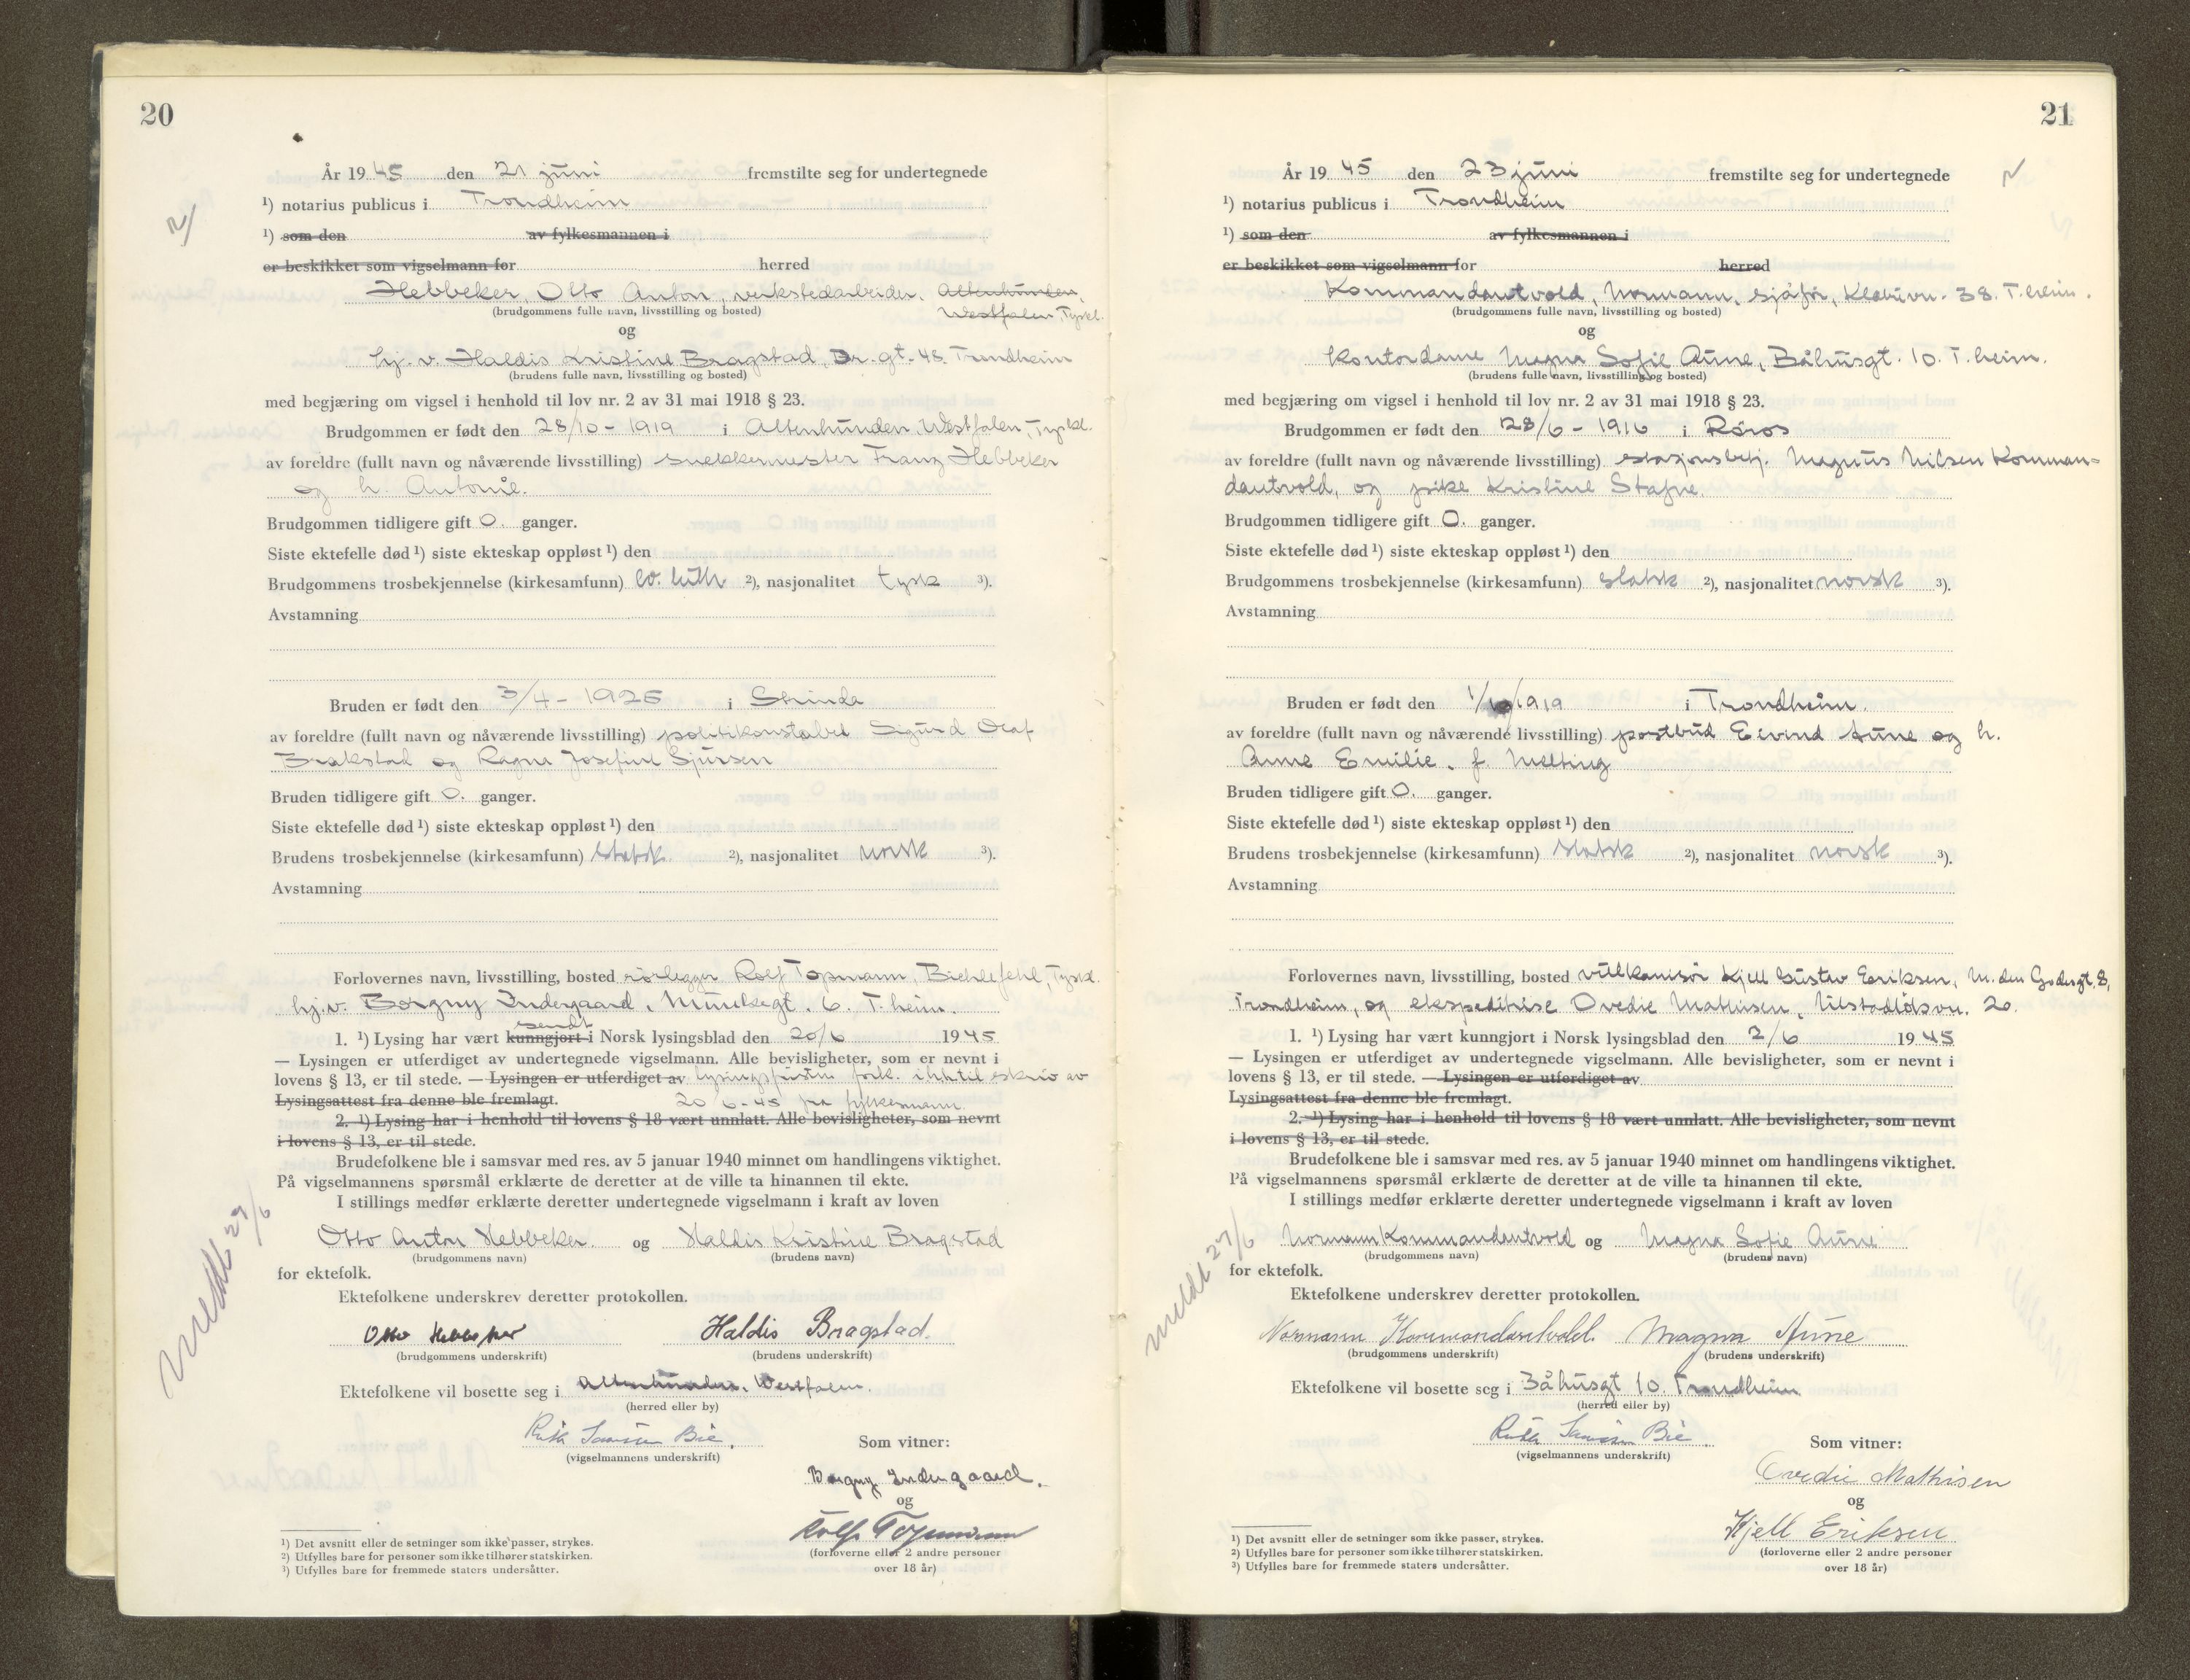 20
År 19 45 den 21 juni fremstilte seg for undertegnede
¹) notarius publicus i Trondheim
¹) som den av fylkesmannen i
er beskikket som vigselmann for herred
Hebbeker, Otto Anton, verkstedarbeider. Altenhunden,
Westfalen, Tyskl.
(brudgommens fulle navn, livsstilling og bosted)
og
hj. v. Haldis Kristine Bragstad, Dr. gt. 48. Trondheim
(brudens fulle navn, livsstilling og bosted)
med begjæring om vigsel i henhold til lov nr. 2 av 31 mai 1918 § 23.
Brudgommen er født den 28/10 - 1919 i Altenhunden, Westfalen, Tyskl.
av foreldre (fullt navn og nåværende livsstilling) snekkermester Franz Hebbeker
og h. Antonie.
Brudgommen tidligere gift 0. ganger.
Siste ektefelle død ¹) siste ekteskap oppløst ¹) den
Brudgommens trosbekjennelse (kirkesamfunn) ev. luth ²), nasjonalitet tysk ³).
Avstamning
Bruden er født den 3/4 - 1925 i Strinda
av foreldre (fullt navn og nåværende livsstilling) politikonstabel Sigurd Olaf
Brakstad og Ragna Josefine Sjursen
Bruden tidligere gift 0. ganger.
Siste ektefelle død ¹) siste ekteskap oppløst ¹) den
Brudens trosbekjennelse (kirkesamfunn) statsk. ²), nasjonalitet norsk ³).
Avstamning
Forlovernes navn, livsstilling, bosted rørlegger Rolf Topmann, Biehlefehl, Tyskl.
hj.v. Borgny Indergaard, Munkegt. 6. T.heim.
sendt
1. ¹) Lysing har vært kunngjort i Norsk lysingsblad den 20/6 1945
— Lysingen er utferdiget av undertegnede vigselmann. Alle bevisligheter, som er nevnt i
lovens § 13, er til stede. — Lysingen er utferdiget av lysingsfristen fork. i h.h.til skriv av
Lysingsattest fra denne ble fremlagt. 20/6-45 fra fylkesmann.
2. ¹) Lysing har i henhold til lovens § 18 vært unnlatt. Alle bevisligheter, som nevnt
i lovens § 13, er til stede.
Brudefolkene ble i samsvar med res. av 5 januar 1940 minnet om handlingens viktighet.
På vigselmannens spørsmål erklærte de deretter at de ville ta hinannen til ekte.
I stillings medfør erklærte deretter undertegnede vigselmann i kraft av loven
Otto Anton Hebbeker og Haldis Kristine Bragstad
(brudgommens navn) (brudens navn)
for ektefolk.
Meldt 27/6
Ektefolkene underskrev deretter protokollen.
Otto Hebbeker Haldis Bragstad.
(brudgommens underskrift) (brudens underskrift)
Ektefolkene vil bosette seg i Altenhunden, Westfalen.
(herred eller by)
Ruth Bie. Som vitner:
(vigselmannens underskrift)
Borgny Indergaard.
og
Rolf Topmann
(forloverne eller 2 andre personer
over 18 år)
¹) Det avsnitt eller de setninger som ikke passer, strykes.
²) Utfylles bare for personer som ikke tilhører statskirken.
³) Utfylles bare for fremmede staters undersåtter.
21
År 19 45 den 23 juni fremstilte seg for undertegnede
¹) notarius publicus i Trondheim
¹) som den av fylkesmannen i
er beskikket som vigselmann for herred
Kommandantvold, Normann, sjåfør, Klæbuvn. 38. T.heim.
(brudgommens fulle navn, livsstilling og bosted)
og
Kontordame Magna Sofie Aune, Båhusgt. 10. T.heim.
(brudens fulle navn, livsstilling og bosted)
med begjæring om vigsel i henhold til lov nr. 2 av 31 mai 1918 § 23.
Brudgommen er født den 28/6 - 1916 i Röros
av foreldre (fullt navn og nåværende livsstilling) stasjonsbetj. Magnus Nilsen Komman-
dantvold, og pike Kristine Stafne.
Brudgommen tidligere gift 0. ganger.
Siste ektefelle død ¹) siste ekteskap oppløst ¹) den
Brudgommens trosbekjennelse (kirkesamfunn) statsk ²), nasjonalitet norsk ³).
Avstamning
Bruden er født den 1/10 1919 i Trondheim.
av foreldre (fullt navn og nåværende livsstilling) postbud Eivind Aune og h.
Anne Emilie, f. Melting
Bruden tidligere gift 0. ganger.
Siste ektefelle død ¹) siste ekteskap oppløst ¹) den
Brudens trosbekjennelse (kirkesamfunn) statsk ²), nasjonalitet norsk ³).
Avstamning
Forlovernes navn, livsstilling, bosted vulkanisør Kjell Gustav Eriksen, M. den Godesgt. 8,
Trondheim, og ekspeditrise Ovedie Mathisen, Uilstadløkvn. 20.
1. ¹) Lysing har vært kunngjort i Norsk lysingsblad den 2/6 1945
— Lysingen er utferdiget av undertegnede vigselmann. Alle bevisligheter, som er nevnt i
lovens § 13, er til stede. — Lysingen er utferdiget av
Lysingsattest fra denne ble fremlagt.
2. ¹) Lysing har i henhold til lovens § 18 vært unnlatt. Alle bevisligheter, som nevnt
i lovens § 13, er til stede.
Brudefolkene ble i samsvar med res. av 5 januar 1940 minnet om handlingens viktighet.
På vigselmannens spørsmål erklærte de deretter at de ville ta hinannen til ekte.
I stillings medfør erklærte deretter undertegnede vigselmann i kraft av loven
Normann Kommandantvold og Magna Sofie Aune
(brudgommens navn) (brudens navn)
for ektefolk.
meldt 27/6
Ektefolkene underskrev deretter protokollen.
Normann Kommandantvold. Magna Aune
(brudgommens underskrift) (brudens underskrift)
Ektefolkene vil bosette seg i Båhusgt 10. Trondheim
(herred eller by)
Ruth Bie. Som vitner:
(vigselmannens underskrift)
Ovedie Mathisen
og
Kjell Eriksen
(forloverne eller 2 andre personer
over 18 år)
¹) Det avsnitt eller de setninger som ikke passer, strykes.
²) Utfylles bare for personer som ikke tilhører statskirken.
³) Utfylles bare for fremmede staters undersåtter.